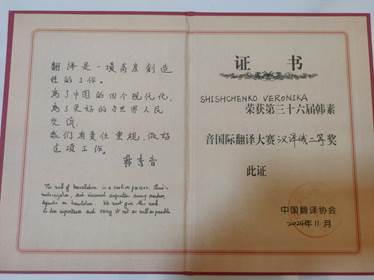 翻译是一项高度创造
性的工作。
为了中国的四个现代化,
为了更好的与世界人民
交流,
我们有责任重视,做好
这项工作。
韩素音
The work of translation is a creative process. China's
modernization, and increased cooperation among peoples,
depends on translation. We must give this work
its due importance and carry it out as well as possible
证 书
SHISHCHENKO VERONIKA
荣获第三十六届韩素
音国际翻译大赛汉译俄 等奖
此证
中国翻译协会
2024年11月